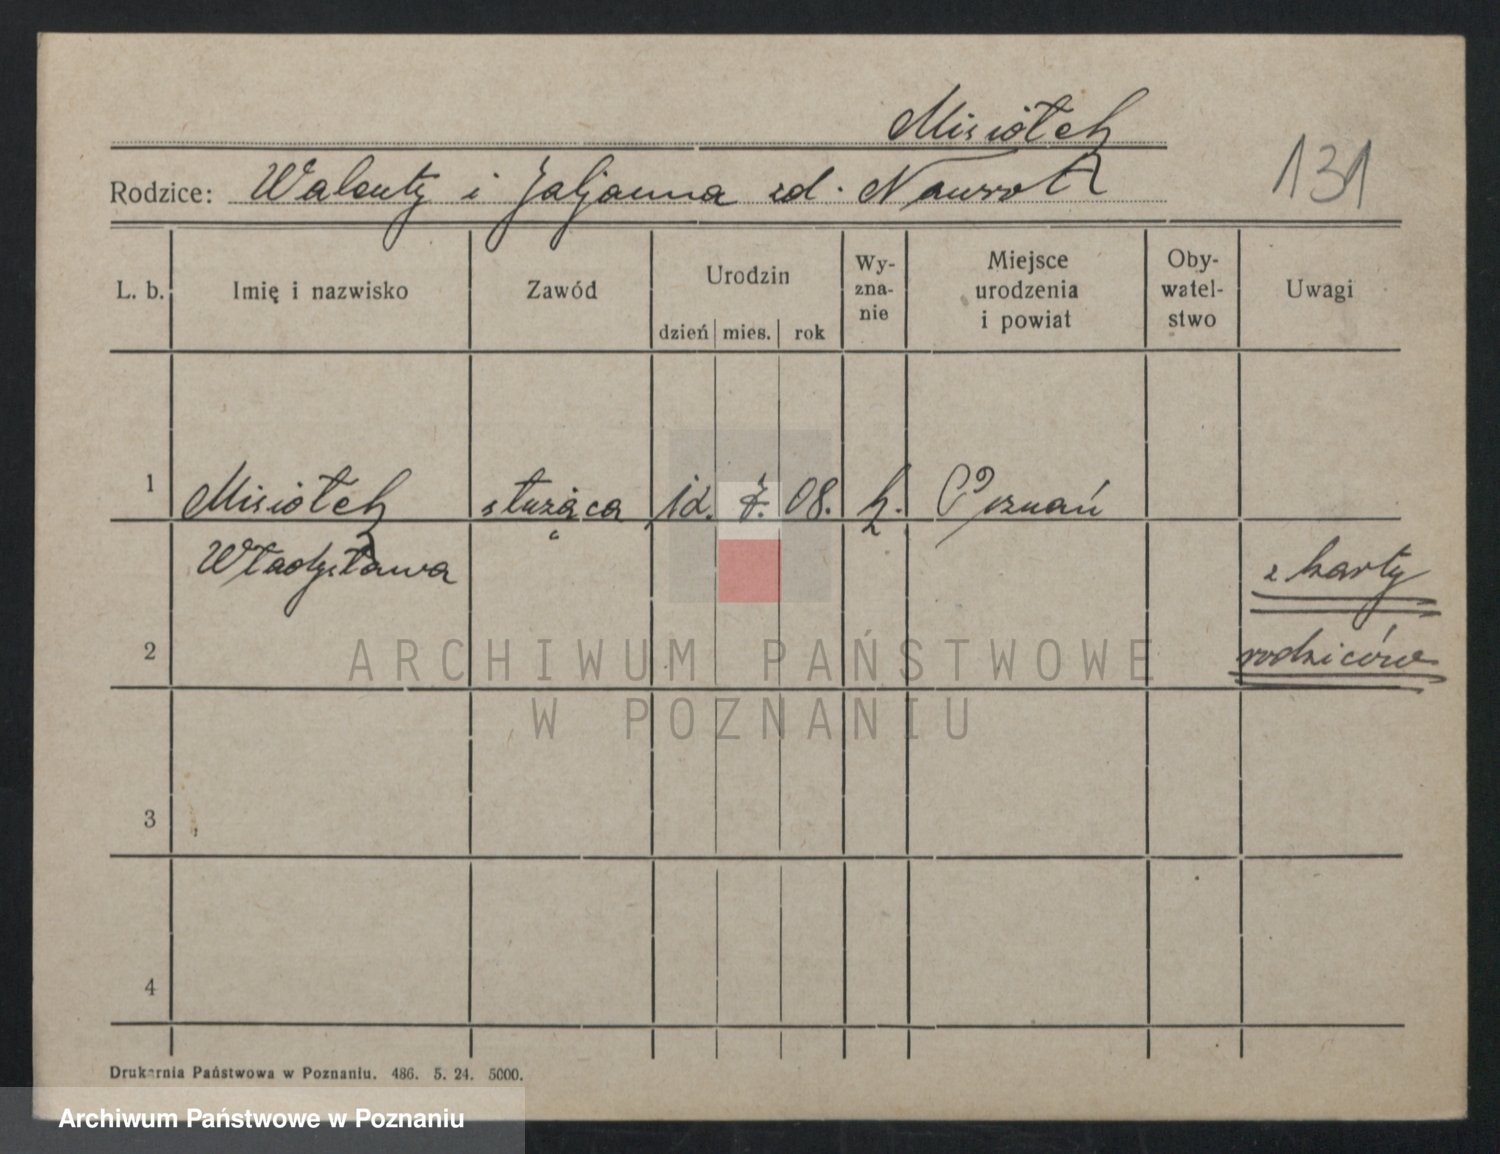 Misiołek
131
Rodzice: Walenty i Juljanna zd. Nawrot
L. b. Imię i nazwisko Zawód Urodzin Wy-zna-nie Miejsce urodzenia i powiat Oby-watel-stwo Uwagi
dzień mies. rok
1 Misiołek służąca 12. 7. 08. k. Poznań
Władysława
z karty
2 rodziców
3
4
ARCHIWUM PAŃSTWOWE
W POZNANIU
Drukarnia Państwowa w Poznaniu. 486. 5. 24. 5000.
Archiwum Państwowe w Poznaniu